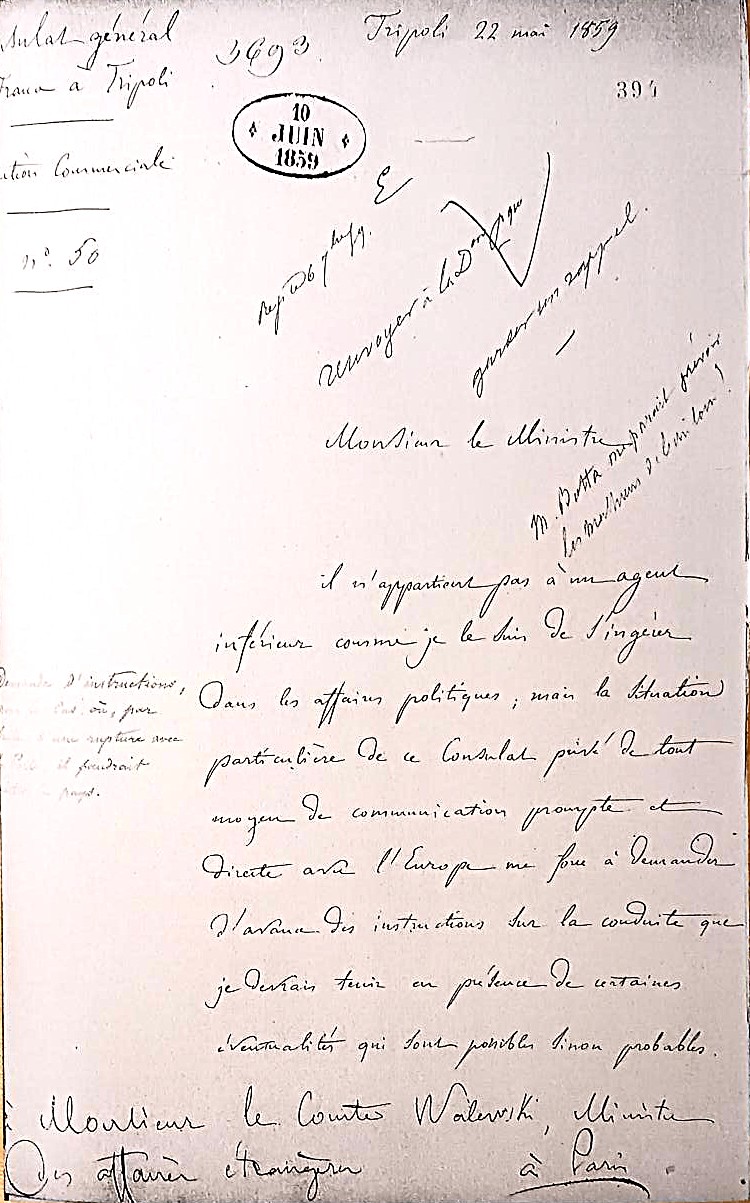 sulat général
France à Tripoli
3693.
Tripoli 22 mai 1859
394
10
JUIN
1859
ction Commerciale
n°. 50
renvoyer à la Don
garder un rappel.
Monsieur le Ministre
M. Botta me parait prévoir
les malheurs de loin !
il n'appartient pas à un agent
inférieur comme je le suis de s'ingérer
dans les affaires politiques ; mais la situation
particulière de ce Consulat privé de tout
moyen de communication prompte et
directe avec l'Europe me force à demander
d'avance des instructions sur la conduite que
je devrais tenir en présence de certaines
éventualités qui sont possibles sinon probables.
Demande d'instructions,
cas où, par
d'une rupture avec
il faudrait
pays.
à Monsieur le Comte Walewski, Ministre
des affaires étrangères à Paris